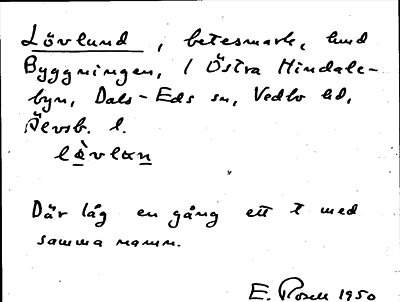 Lövlund, betesmark, hmd
Byggningen, 1 Östra Hindale-
byn, Dals-Eds sn, Vedbo hd,
Älvsb. l.
Där låg en gång ett t med
samma namn.
E. Rosell 1950